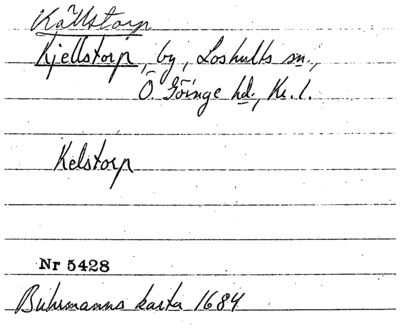 Källstorp
Kjellstorp, by, Loshults sn.,
Ö. Göinge hd., Kr. l.
Kelstorp
Nr 5428
Buhrmanns karta 1684